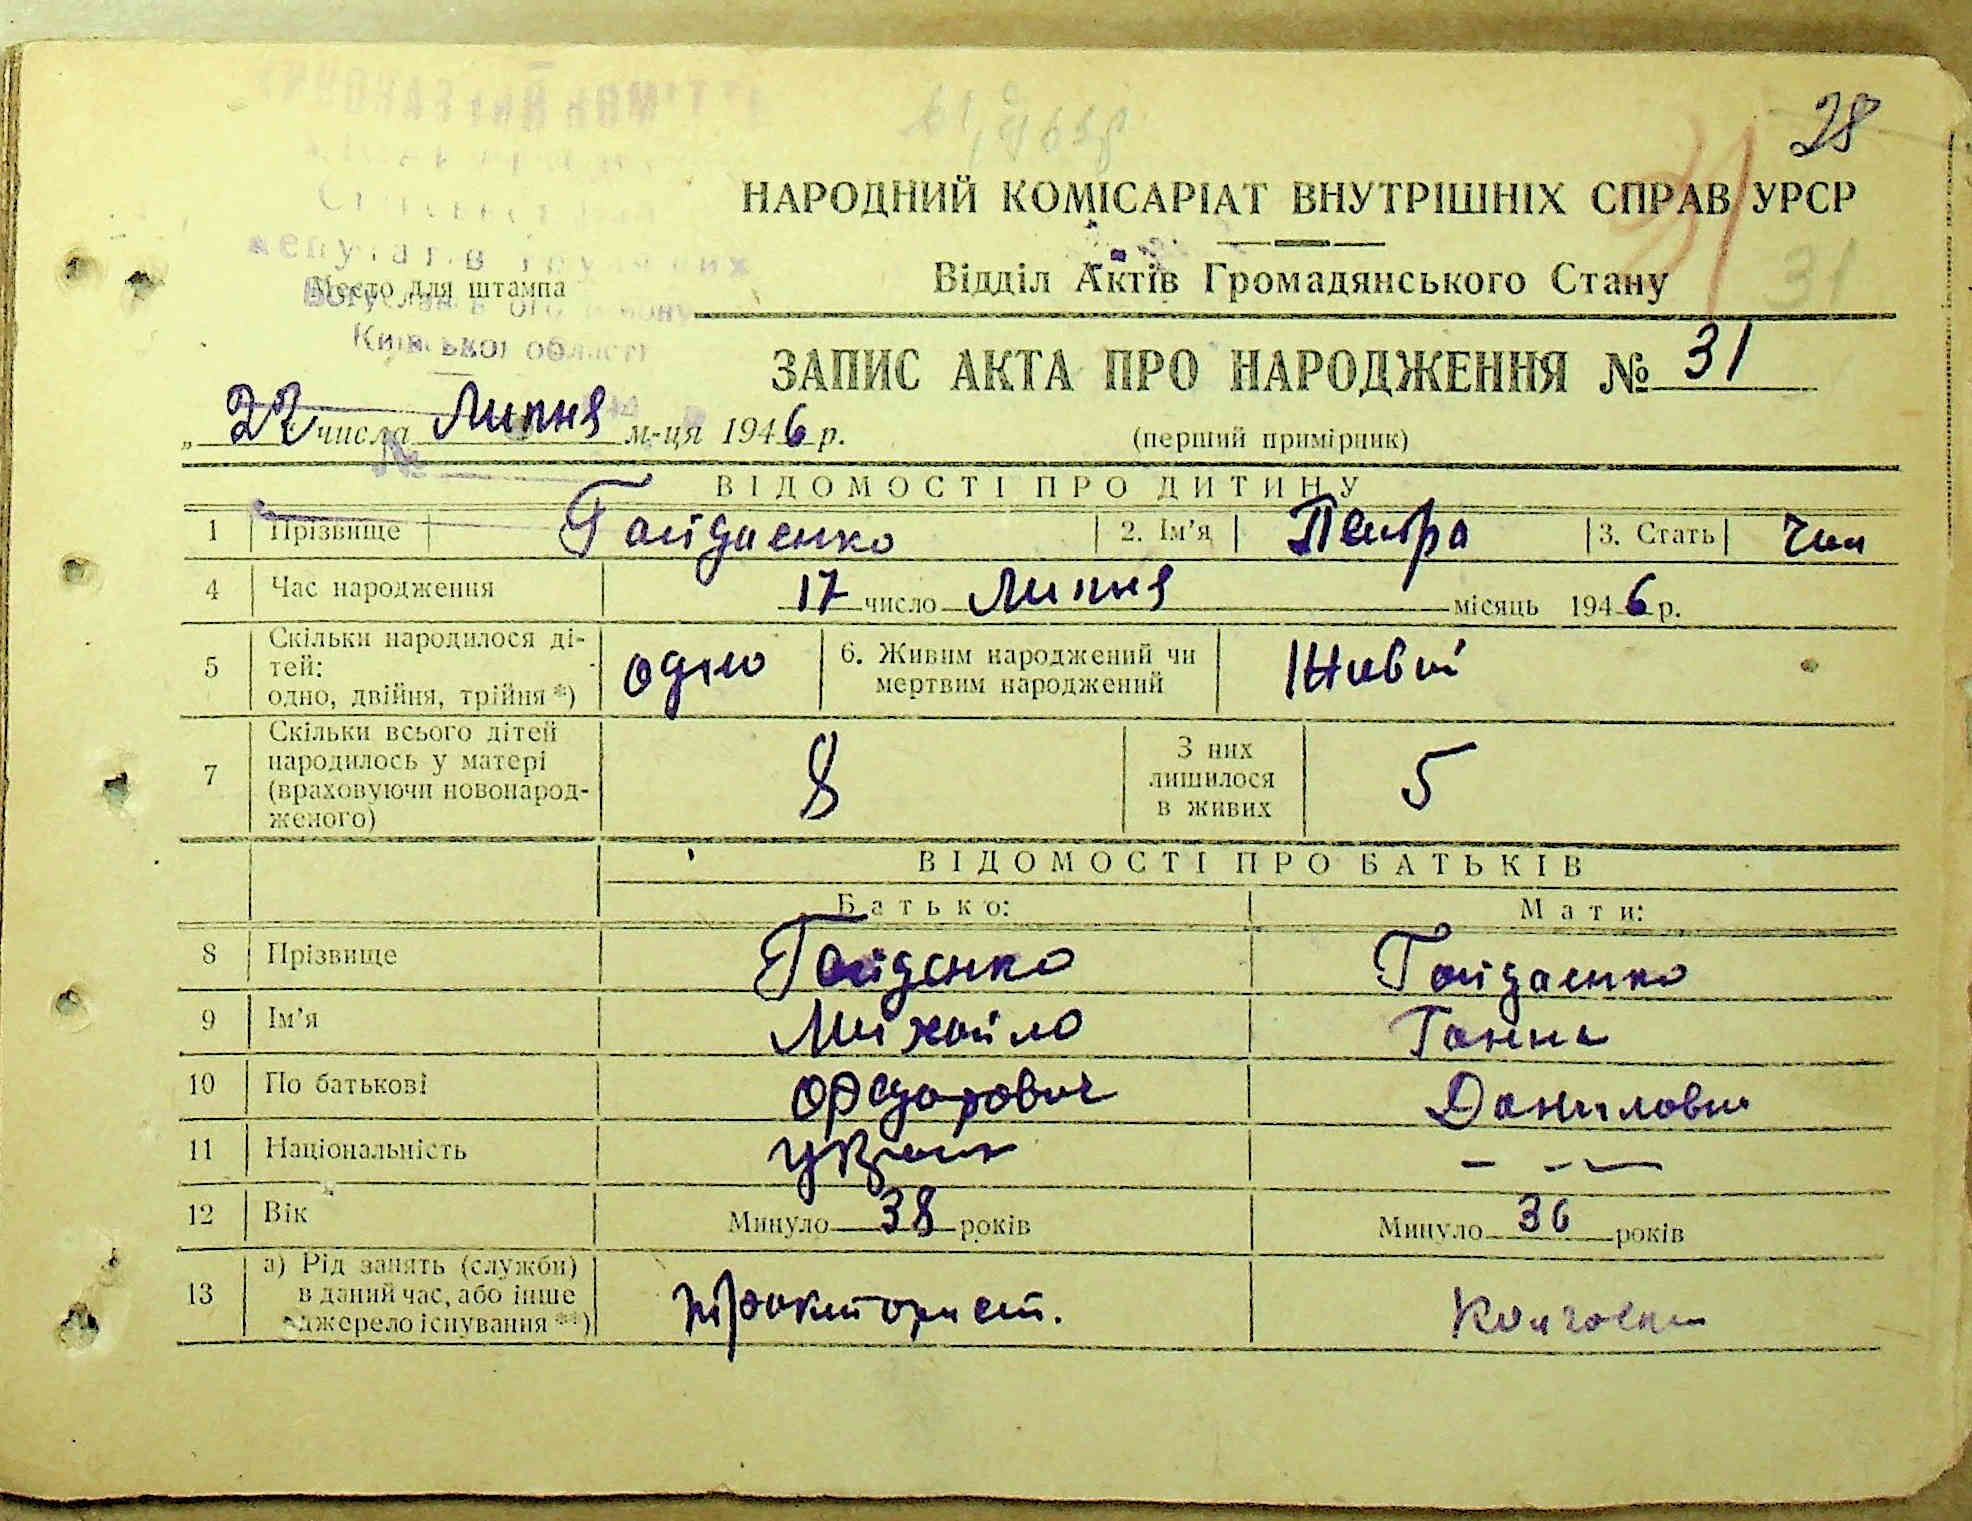 28
НАРОДНИЙ КОМІСАРІАТ ВНУТРІШНІХ СПРАВ УРСР
31
31
Відділ Актів Громадянського Стану
депутатів трудящих
Место для штампа
Київської області
ЗАПИС АКТА ПРО НАРОДЖЕННЯ № 31
„ 22 числа Липня м-ця 1946 р.
(перший примірник)
№
ВІДОМОСТІ ПРО ДИТИНУ
1 Прізвище Гайдаенко 2. Ім'я Петро 3. Стать Чол
4 Час народження 17 число Липня місяць 1946 р.
5 Скільки народилося ді-
тей:
одно, двійня, трійня *) одно 6. Живим народжений чи
мертвим народжений Живий
7 Скільки всього дітей
народилось у матері
(враховуючи новонарод-
женого) 8 З них
лишилося
в живих 5
ВІДОМОСТІ ПРО БАТЬКІВ
Батько: Мати:
8 Прізвище Гайденко Гайдаенко
9 Ім'я Михайло Ганна
10 По батькові Федорович Даниловна
11 Національність - - -
12 Вік Минуло 38 років Минуло 36 років
13 а) Рід занять (служби)
в даний час, або інше
джерело існування **) тракторист.